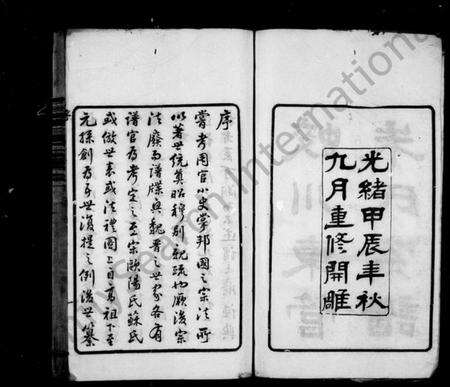 光緒甲辰年秋
九月重修開雕
序
嘗考周官小史掌邦國之宗法所
以著世統奠昭穆別親疏也厥後宗
法廢而譜牒興魏晉之世家各有
譜官為考定之至宋歐陽氏蘇氏
或倣世表或法禮圖上自高祖下至
元孫創為五世復提之例後世纂